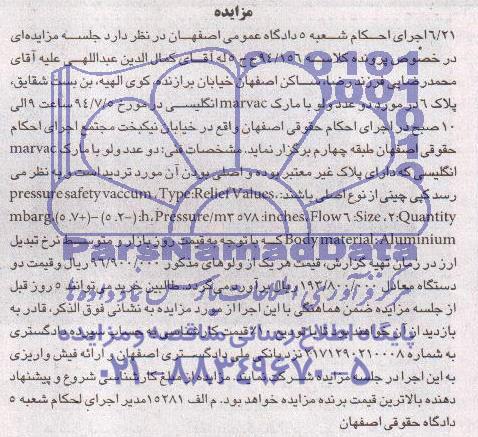 مزایده
۶/۲۱ اجرای احکام شعبه ۵ دادگاه عمومی اصفهان در نظر دارد جلسه مزایده‌ای
در خصوص پرونده کلاسه ۹۴/۱۵۶ ج ح ۵ له آقای کمال الدین عبداللهی علیه آقای
محمدرضایی فرزند رضا ساکن اصفهان خیابان برازنده، کوی الهیه، بن بست شقایق،
پلاک ۶ در مورد دو عدد ولو با مارک marvac انگلیسی در مورخ ۹۴/۷/۵ ساعت ۹ الی
۱۰ صبح در اجرای احکام حقوقی اصفهان واقع در خیابان نیکبخت مجتمع اجرای احکام
حقوقی اصفهان طبقه چهارم برگزار نماید. مشخصات فنی: دو عدد ولو با مارک marvac
انگلیسی که دارای پلاک غیر معتبر بوده و اصلی بودن آن مورد تردید است و به نظر می
رسد کپی چینی از نوع اصلی باشد: pressure safety vaccum , Type:Relief Values
mbarg,(۵.۷+)–(۵.۲–):h, Pressure/m۳ ۵۷۸:inches, Flow ۶:Size ،۲:Quantity
Body material:Aluminium که با توجه به قیمت روز بازار و متوسط نرخ تبدیل
ارز در زمان تهیه گزارش، قیمت هر یک از ولوهای مذکور ریال و قیمت دو
دستگاه معادل ریال برآورد می‌گردد. طالبین خرید می‌توانند ۵ روز قبل
از جلسه مزایده ضمن هماهنگی با این اجرا از مورد مزایده به نشانی فوق الذکر، قادر به
بازدید از آن خواهند بود. قیمت کارشناسی به حساب سپرده دادگستری
به شماره ۲۱۷۱۲۹۰۲۱۰۰۰۸ نزد بانک ملی دادگستری اصفهان و ارائه فیش واریزی
به این اجرا در جلسه مزایده شرکت نمایند. مزایده از مبلغ کارشناسی شروع و پیشنهاد
دهنده بالاترین قیمت برنده مزایده خواهد بود. م الف ۱۵۲۸۱ مدیر اجرای احکام شعبه ۵
دادگاه حقوقی اصفهان
ParsNamadData
پایگاه اطلاع رسانی مناقصه و مزایده
۰۲۱-۸۸۳۴۹۶۷۰-۵